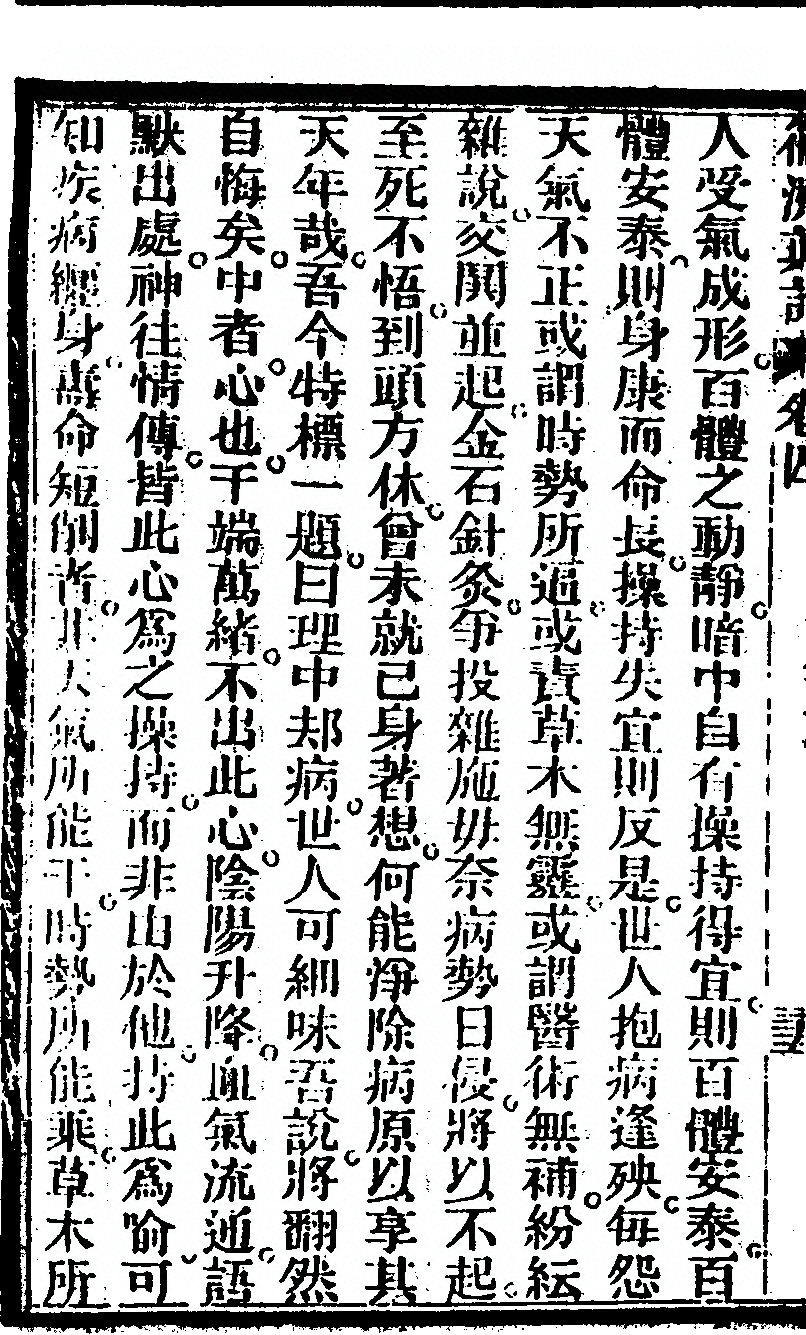 卷四
人受氣成形百體之動靜暗中自有操持得宜則百體安泰百
體安泰則身康而命長操持失宜則反是世人抱病逢殃每怨
天氣不正或謂時勢所逼或責草木無靈或謂醫術無補紛紜
雜說交鬨並起金石針灸爭投雜施毋奈病勢日侵將以不起
至死不悟到頭方休曾未就已身著想何能淨除病原以享其
天年哉吾今特標一題曰理中却病世人可細味吾說將翻然
自悔矣中者心也千端萬緒不出此心陰陽升降血氣流通語
默出處神往情傳皆此心為之操持而非由於他持此為喻可
知疾病纏身壽命短削者非天氣所能干時勢所能乘草木所